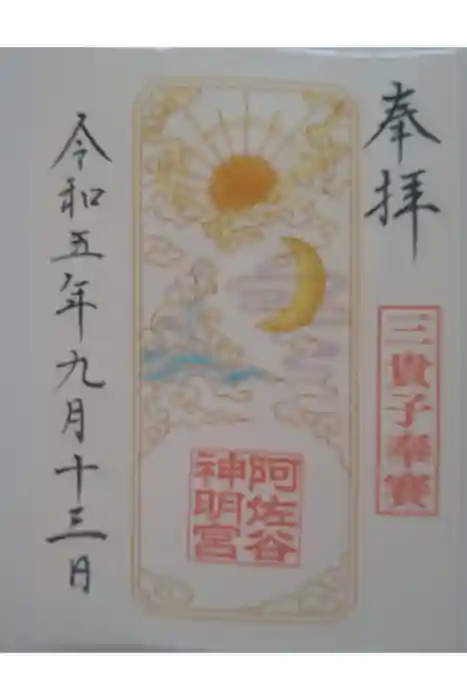 奉拝
三貴子奉賽
阿佐谷
神明宮
令和五年九月十三日